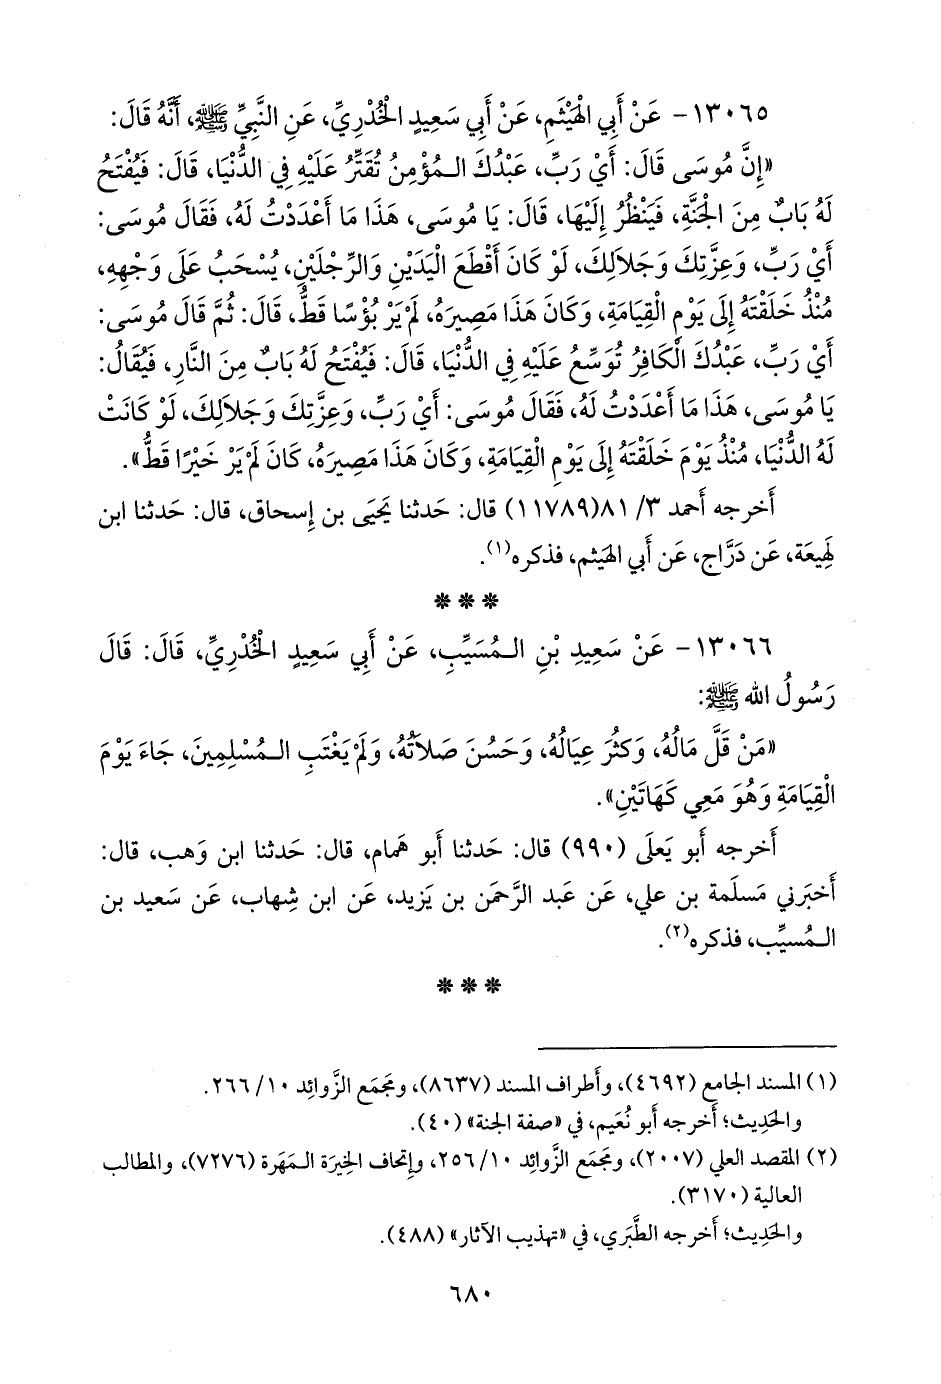 ١٣٠٦٥- عَنْ أَبِي الْهَيْثَمِ، عَنْ أَبِي سَعِيدٍ الْخُدْرِيِّ، عَنِ النَّبِيِّ ﷺ، أَنَّهُ قَالَ:
«إِنَّ مُوسَى قَالَ: أَيْ رَبِّ، عَبْدُكَ الـمُؤْمِنُ تُقَتِّرُ عَلَيْهِ فِي الدُّنْيَا، قَالَ: فَيُفْتَحُ
لَهُ بَابٌ مِنَ الْجَنَّةِ، فَيَنْظُرُ إِلَيْهَا، قَالَ: يَا مُوسَى، هَذَا مَا أَعْدَدْتُ لَهُ، فَقَالَ مُوسَى:
أَيْ رَبِّ، وَعِزَّتِكَ وَجَلَالِكَ، لَوْ كَانَ أَقْطَعَ الْيَدَيْنِ وَالرِّجْلَيْنِ، يُسْحَبُ عَلَى وَجْهِهِ،
مُنْذُ خَلَقْتَهُ إِلَى يَوْمِ الْقِيَامَةِ، وَكَانَ هَذَا مَصِيرَهُ، لَمْ يَرْ بُؤْسًا قَطُّ، قَالَ: ثُمَّ قَالَ مُوسَى:
أَيْ رَبِّ، عَبْدُكَ الْكَافِرُ تُوَسِّعُ عَلَيْهِ فِي الدُّنْيَا، قَالَ: فَيُفْتَحُ لَهُ بَابٌ مِنَ النَّارِ، فَيُقَالُ:
يَا مُوسَى، هَذَا مَا أَعْدَدْتُ لَهُ، فَقَالَ مُوسَى: أَيْ رَبِّ، وَعِزَّتِكَ وَجَلَالِكَ، لَوْ كَانَتْ
لَهُ الدُّنْيَا، مُنْذُ يَوْمَ خَلَقْتَهُ إِلَى يَوْمِ الْقِيَامَةِ، وَكَانَ هَذَا مَصِيرَهُ، كَانَ لَمْ يَرْ خَيْرًا قَطُّ».
أَخرجه أَحمد ٣/ ٨١(١١٧٨٩) قال: حَدثنا يَحيَى بن إِسحاق، قال: حَدثنا ابن
لَهِيعَة، عَن دَرَّاج، عَن أَبي الهَيثم، فذكره(١).
* * *
١٣٠٦٦- عَنْ سَعِيدِ بْنِ الـمُسَيِّبِ، عَنْ أَبِي سَعِيدٍ الْخُدْرِيِّ، قَالَ: قَالَ
رَسُولُ الله ﷺ:
«مَنْ قَلَّ مَالُهُ، وَكَثُرَ عِيَالُهُ، وَحَسُنَ صَلَاتُهُ، وَلَمْ يَغْتَبِ الـمُسْلِمِينَ، جَاءَ يَوْمَ
الْقِيَامَةِ وَهُوَ مَعِي كَهَاتَيْنِ».
أَخرجه أَبو يَعلَى (٩٩٠) قال: حَدثنا أَبو هَمام، قال: حَدثنا ابن وَهب، قال:
أَخبَرني مَسلَمة بن علي، عَن عبد الرَّحمَن بن يَزيد، عَن ابن شِهاب، عَن سَعيد بن
الـمُسيِّب، فذكره(٢).
* * *
(١) المسند الجامع (٤٦٩٢)، وأَطراف المسند (٨٦٣٧)، ومَجمَع الزَّوائِد ١٠/ ٢٦٦.
والحَدِيث؛ أَخرجه أَبو نُعَيم، في «صفة الجنة» (٤٠).
(٢) المقصد العلي (٢٠٠٧)، ومَجمَع الزَّوائِد ١٠/ ٢٥٦، وإتحاف الخِيرَة الـمَهَرة (٧٢٧٦)، والمطالب
العالية (٣١٧٠).
والحَدِيث؛ أَخرجه الطَّبَري، في «تهذيب الآثار» (٤٨٨).
٦٨٠